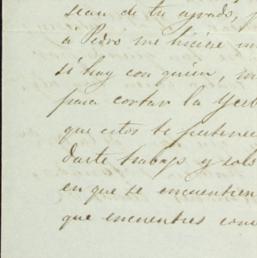 sean de tu agrado,
á Pedro me hiciese
si hay con quien,
para cortar la Yerb
que estos te
darte trabajo y solo
en que se encuentren
que encuentres conv